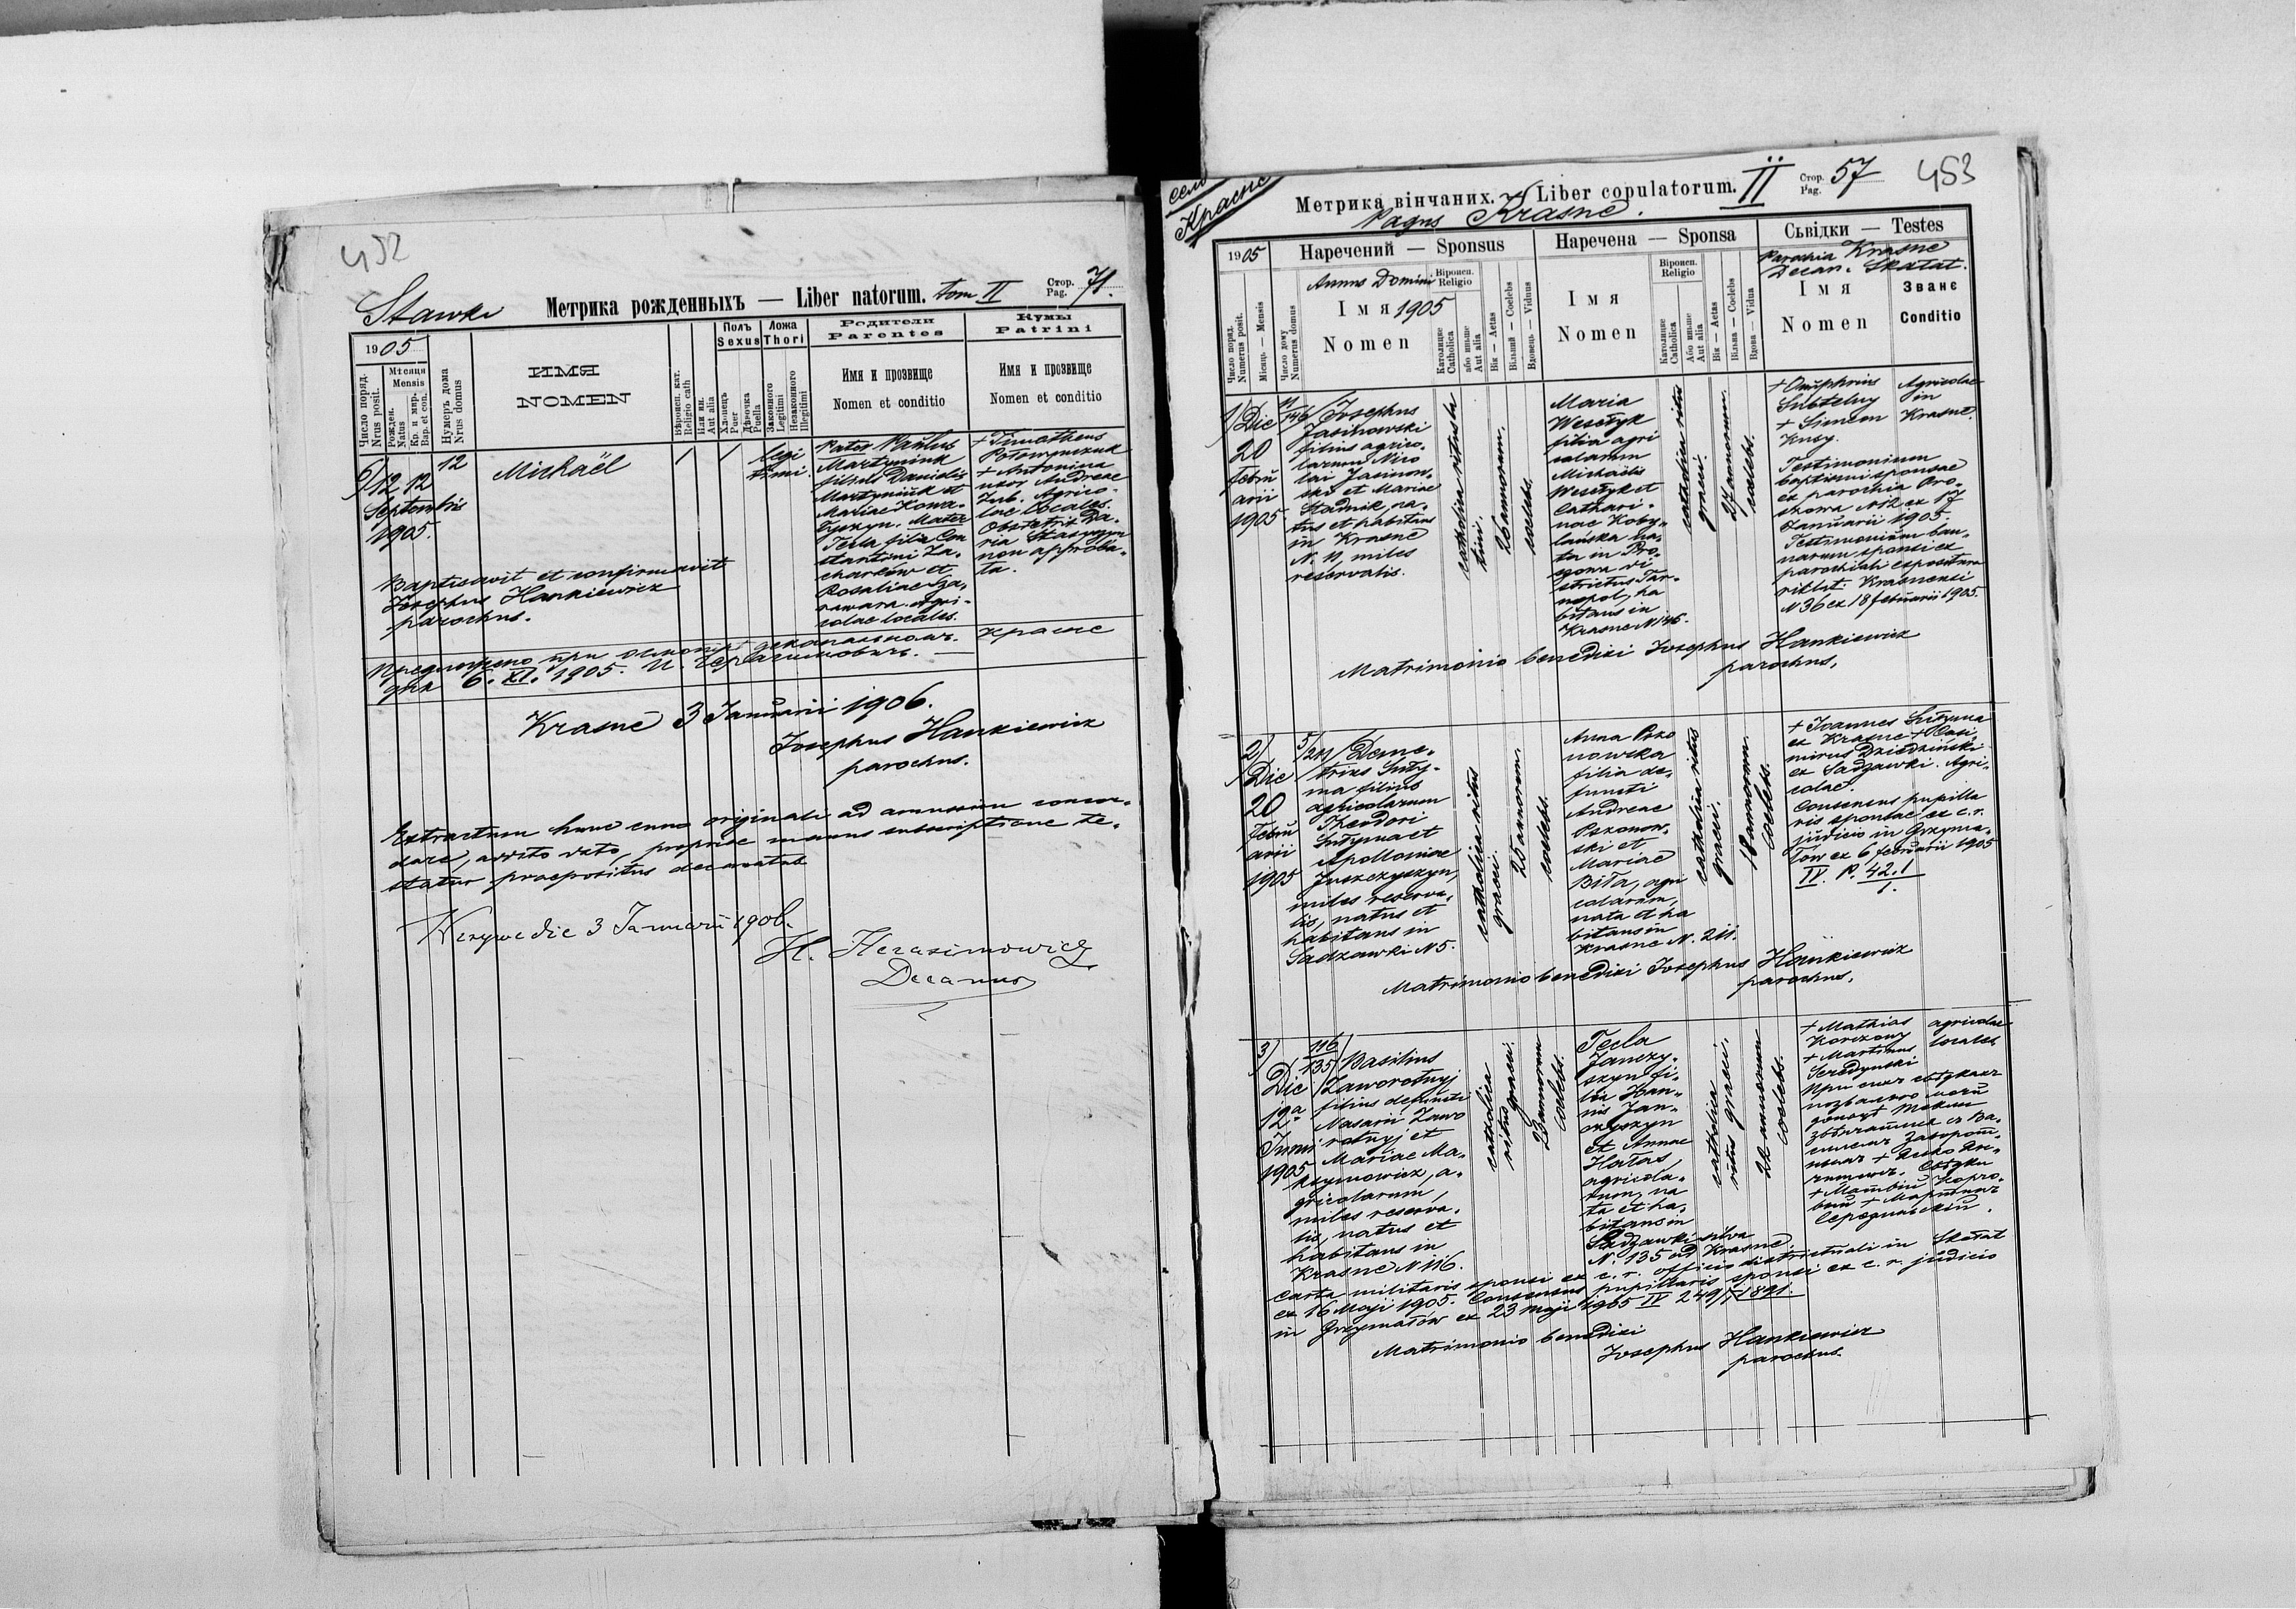 452
Stawki
Метрика рожденныхъ — Liber natorum. tom II
Стор.
Pag. 71.
1905
Число поряд.
Nrus posit.
Мѣсяця
Mensis
Рожден.
Natus
Кр. и мѵр.
Bap. et con.
Нумеръ дома
Nrus domus
ИМЯ
NOMEN
Вѣроисп. кат.
Religio cath
Или ин.
Aut alia
Полъ
Sexus
Хлопець
Puer
Дѣвочка
Puella
Ложа
Thori
Законного
Legitimi
Незаконного
Illegitimi
Родители
Parentes
Имя и прозвище
Nomen et conditio
Кумы
Patrini
Имя и прозвище
Nomen et conditio
6)
12 12
Septembris
1905.
12
Michaël
legi
timi
Pater Paulus
Martyniuk
filius Danielis
Martyniuk et
Mariae
Mater
Tecla filia Con
stantini Za-
charków et
Rosaliae
agri-
colae locales.
+ Timotheus
+ Antonina
uxor Andreae
Zub. Agrico-
lae locales.
Obstetrix Da-
ria
non approba-
ta.
Baptisavit et confirmavit
Josephus Hankiewicz
parochus.
при деканальномъ. Красне
дня 6. XI. 1905. И. Герасимовичъ.
Krasne 3 Januarii 1906.
Josephus Hankiewicz
parochus.
Extractum hunc cum originali ad amussim concor-
dare, addito voto, propriae manus subscriptione te-
statur praepositus decanatus
die 3 Januarii 1906.
H. Herasimowicz
Decanus
село
Красне
Метрика вінчаних. — Liber copulatorum. II
Стор.
Pag. 57
453
Pagus Krasne.
1905
Наречений — Sponsus
Наречена — Sponsa
Сьвідки — Testes
Parochia Krasne
Decan. Skałat.
Число поряд.
Numerus posit.
Місяць — Mensis
Число дому
Numerus domus
Annus Domini
Імя 1905
Nomen
Віроисп.
Religio
Католицке
Catholica
або иньше
Aut alia
Вік — Aetas
Вільний — Coelebs
Вдовець — Viduus
Імя
Nomen
Віроисп.
Religio
Католицке
Catholica
Або иньше
Aut alia
Вік — Aetas
Вільна — Coelebs
Вдова — Vidua
Імя
Nomen
Званє
Conditio
1)
Die
20
Febru
arii
1905
146
Josephus
Jasinowski
filius agrico-
larum Nico
lai Jasinow-
ski et Mariae
Stadnik, na-
tus et habitans
in Krasne
N. miles
reservatis.
catholica ritus la
tini.
26 annorum.
coelebs.
Maria
Wesełyk
filia agri
colarum
Michaëlis
Wesełyk et
Cathari-
nae Koby-
lańska na-
ta in
di
strictus Tar-
nopol, ha
bitans in
Krasne N 146.
catholica ritus
graeci.
27 annorum.
coelebs.
+ Onuphrius
Subtelny
+ Simeon
Kusy.
Agricolae
in
Krasne
Testimonium
baptismi sponsae
ex parochia
N 12 ex 17
Januarii 1905.
Testimonium ban-
norum sponsi ex
parochiali expositura
ritus lat. Krasnensi
N 36 ex 18 februarii 1905.
Matrimonio benedixi Josephus Hankiewicz
parochus.
2)
Die
20
Febru
arii
1905
5/211
Deme-
trius Sńiży-
ma filius
agricolarum
Theodori
et
Apolloniae
miles reserva-
tis, natus et
habitans in
Sadzawki N 5.
catholica ritus
graeci.
25 annorum.
coelebs.
Anna Pozo
nowska
filia de-
functi
Andreae
Pozonow-
ski et
Mariae
Biła, agri
colarum,
nata et ha
bitans in
Krasne N. 211.
catholica ritus
graeci.
18 annorum.
coelebs.
+ Joannes
ex Krasne + Casi-
mirus Dziedziński
ex Sadzawki. Agri-
colae.
Consensus pupilla
ris sponsae ex c. r.
judicio in Grzyma-
łów ex 6 februarii 1905
IV. P. 42.1
1.
Matrimonio benedixi Josephus Hankiewicz
parochus.
3)
Die
12a
Junii
1905
116
135
Basilius
Zaworotnyj
filius defuncti
Nasarii Zawo
rotnyj et
Mariae Ma-
xymowicz, a-
gricolarum,
miles reserva-
tis, natus et
habitans in
Krasne N 116.
catholica
ritus graeci.
23 annorum
coelebs.
Tecla
Janczy-
szyn fi-
lia Joan-
nis Jan-
czyszyn
et Annae
Hałas,
agricola-
rum, na
ta et ha-
bitans in
Sadzawki silva
N. 135 ad Krasne.
catholica
ritus graeci.
22 annorum
coelebs.
+ Mathias
Korczowy
+ Martinus
Seredynski
agricolae
locales
Carta militaris sponsi ex c. r. officio districtuali in Skałat
ex 16 Maji 1905. Consensus pupillaris sponsi ex c. r. judicio
in Grzymałów ex 23 maji 1905 IV 249/1891.
Matrimonio benedixi
Josephus Hankiewicz
parochus.